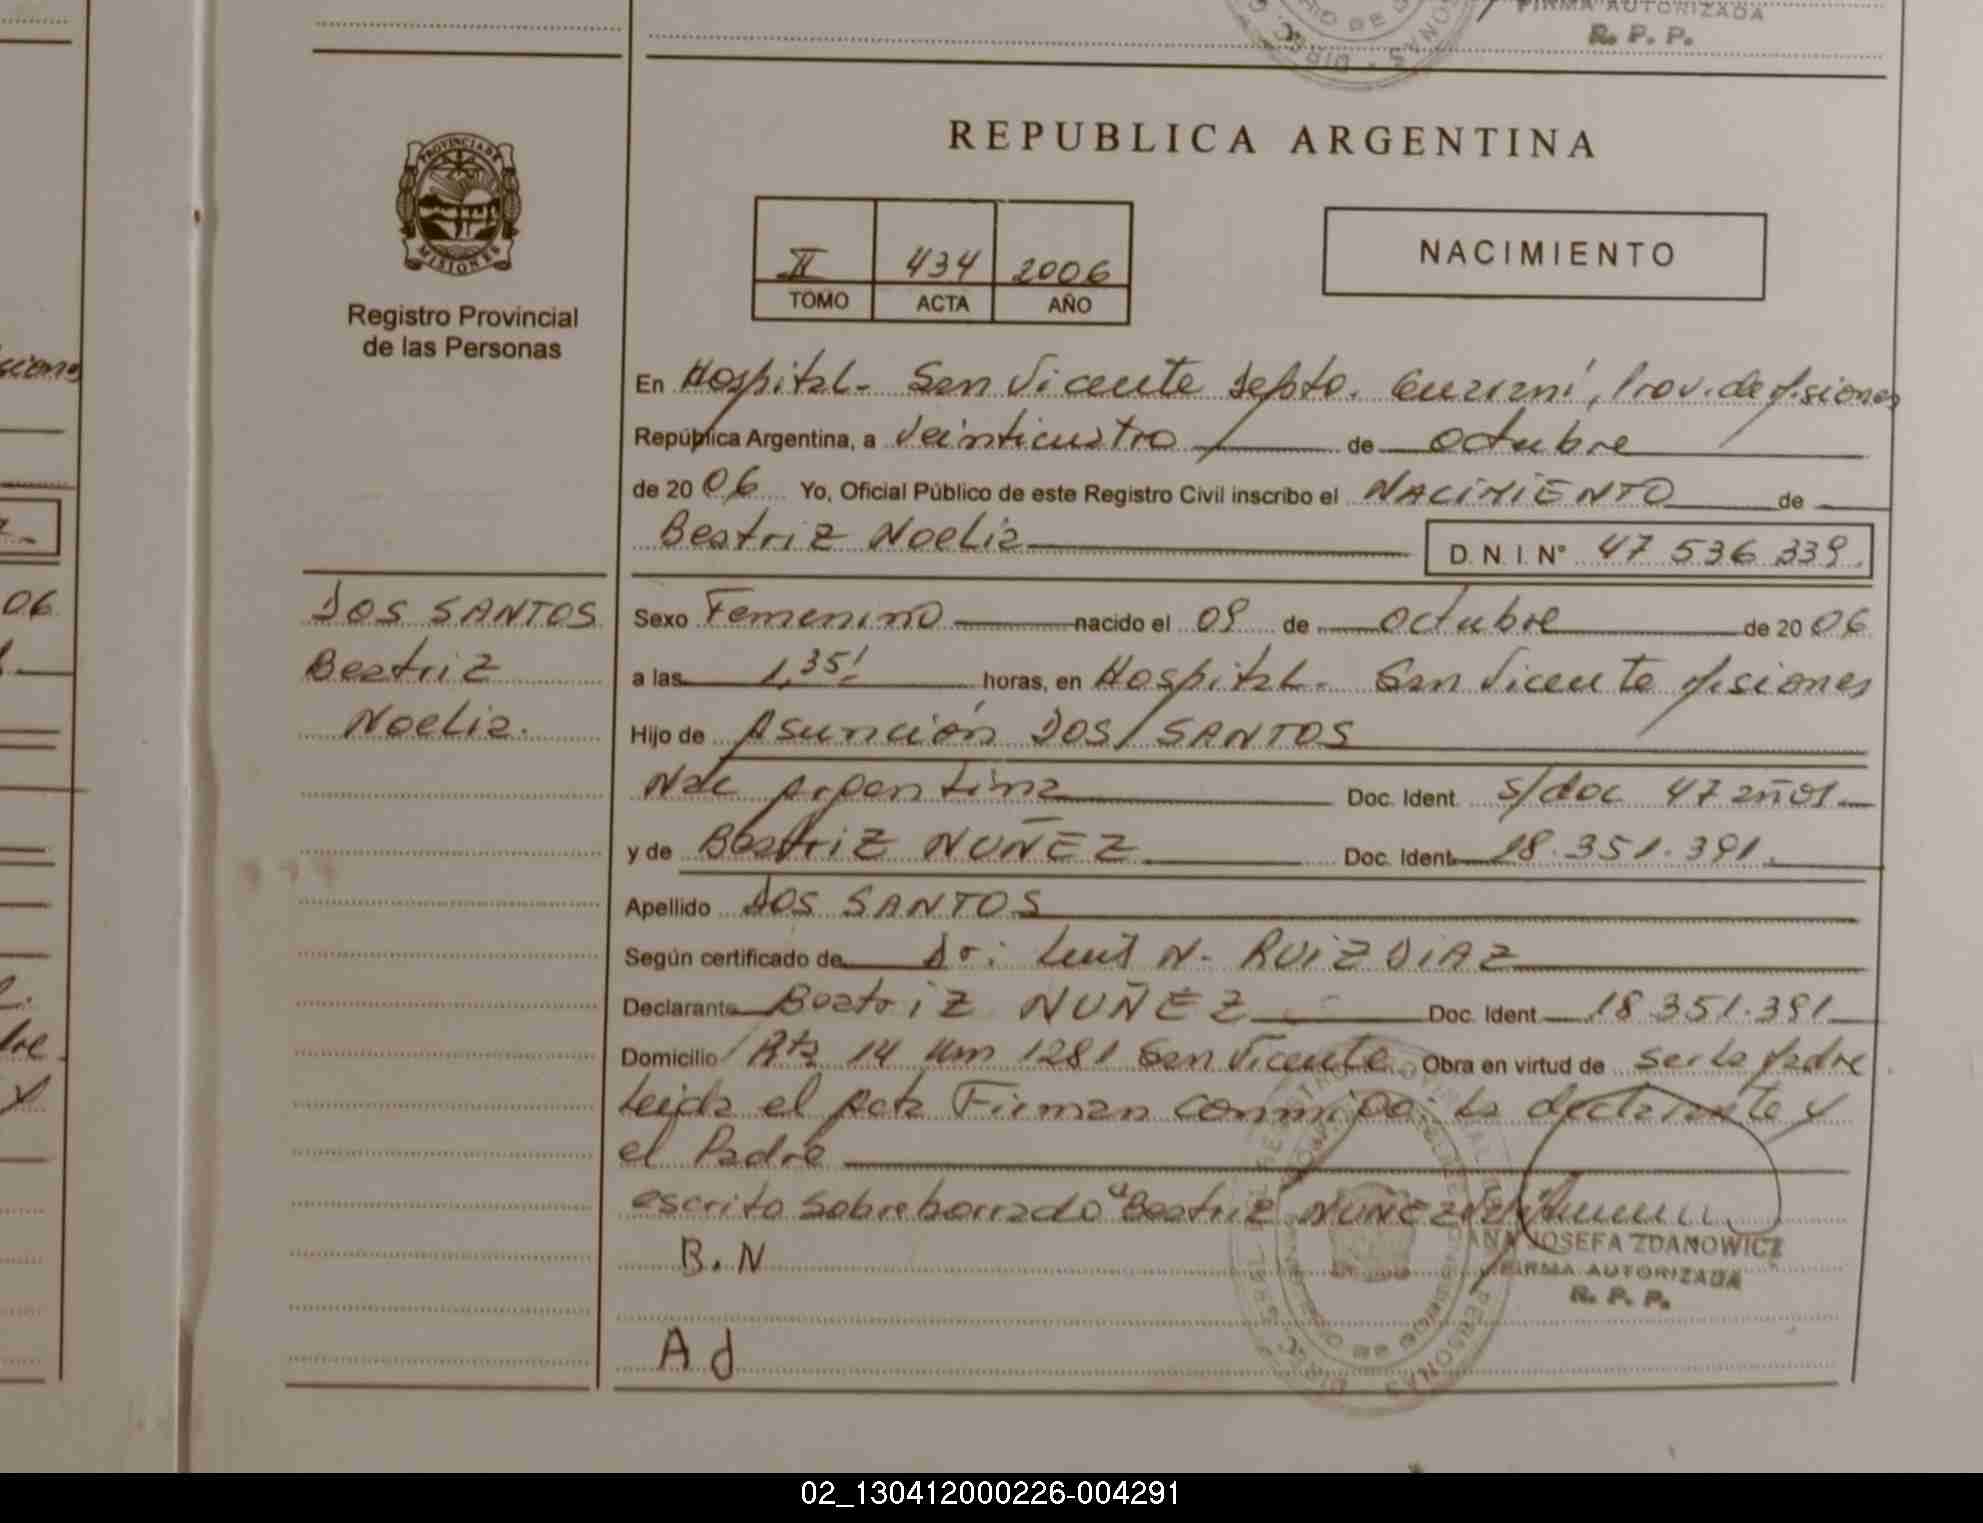 FIRMA AUTORIZADA
R. P. P.
PROVINCIA DE
MISIONES
Registro Provincial
de las Personas
REPUBLICA ARGENTINA
II 434 2006
TOMO ACTA AÑO
NACIMIENTO
En Hospital - San Vicente Depto. Guaraní, Prov. de Misiones
República Argentina, a veinticuatro de octubre
de 2006 Yo, Oficial Público de este Registro Civil inscribo el NACIMIENTO de
Beatriz Noelia D. N. I. N° 47 536 339.
DOS SANTOS
Beatriz
Noelia.
Sexo Femenino nacido el 09 de octubre de 2006
a las 1,35! horas, en Hospital - San Vicente Misiones
Hijo de Asunción DOS SANTOS
Nac Argentina Doc. Ident. s/doc 47 años
y de Beatriz NUÑEZ Doc. Ident. 18.351.391.
Apellido DOS SANTOS
Según certificado de Dr: Luis N. RUIZ DIAZ
Declarante Beatriz NUÑEZ Doc. Ident. 18.351.391
Domicilio Rta 14 Km 1281 San Vicente Obra en virtud de ser la Madre
Leida el Acta Firman conmigo. La declarante y
el Padre
escrito sobreborrado "Beatriz NUÑEZ"
B. N
ANA JOSEFA ZDANOWICZ
FIRMA AUTORIZADA
R. P. P.
Ad
02_130412000226-004291